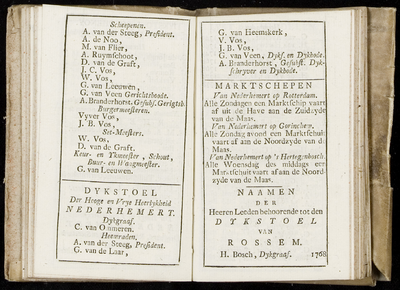 Schepenen.
A. van der Steeg, President.
A. de Noo,
M. van Flier,
A. Ruymschoot,
D. van de Graft,
J. C. Vos,
W. Vos,
G. van Leeuwen,
G. van Veen Gerichtsbode.
A. Branderhorst. Gesubst. Gerigtsb.
Burgermeesteren.
Vyver Vos,
J. B. Vos,
Set-Meesters.
W. Vos,
D. van de Graft.
Keur- en Ykmeester, Schout,
Buur- en Waagmeester.
G. van Leeuwen.
DYKSTOEL
Der Hooge en Vrye Heerlykheid
NEDERHEMERT.
Dykgraaf.
C. van Ommeren.
Heemraden.
A. van der Steeg, President.
G. van de Laar,
G. van Heemskerk,
V. Vos,
J. B. Vos,
G. van Veen, Dyks. en Dykbode.
A. Branderhorst, Gesubst. Dyk-
schryver en Dykbode.
MARKTSCHEPEN
Van Nederhemert op Rotterdam.
Alle Zondagen een Marktschip vaart
af uit de Have aan de Zuidzyde
van de Maas.
Van Nederhemert op Gorinchem.
Alle Zondag avond een Marktschuit
vaart af aan de Noordzyde van de
Maas.
Van Nederhemert op 's Hertogenbosch.
Alle Woensdag des middags een
Marktschuit vaart af aan de Noord
zyde van de Maas.
NAAMEN
DER
Heeren Leeden behoorende tot den
DYKSTOEL
VAN
ROSSEM.
H. Bosch, Dykgraaf. 1768